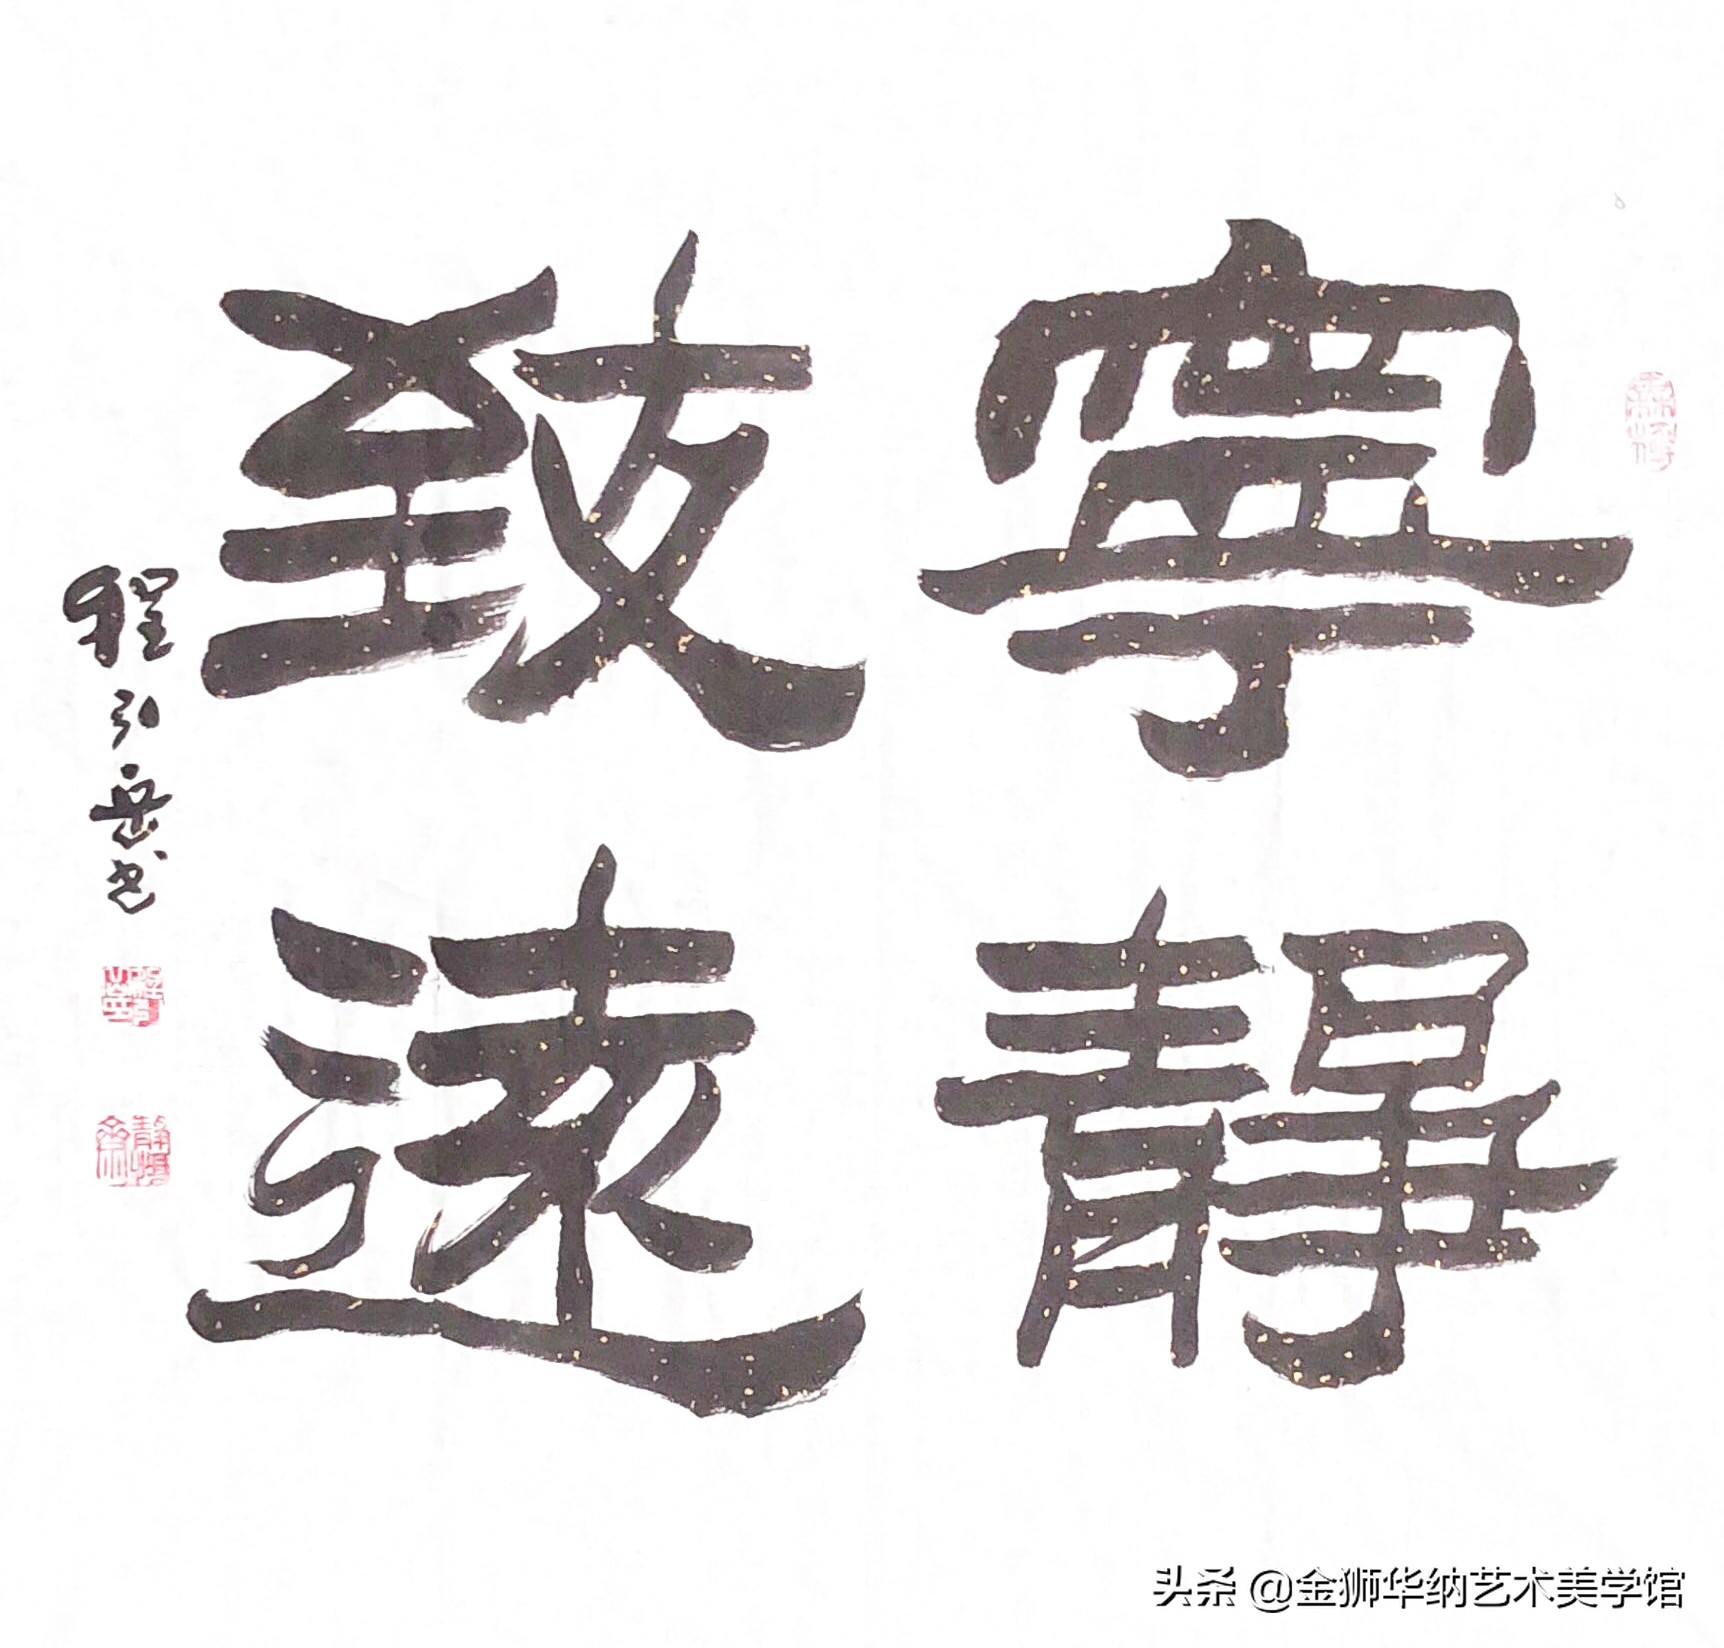 寧靜
致遠
程弘岳书
头条 @金狮华纳艺术美学馆